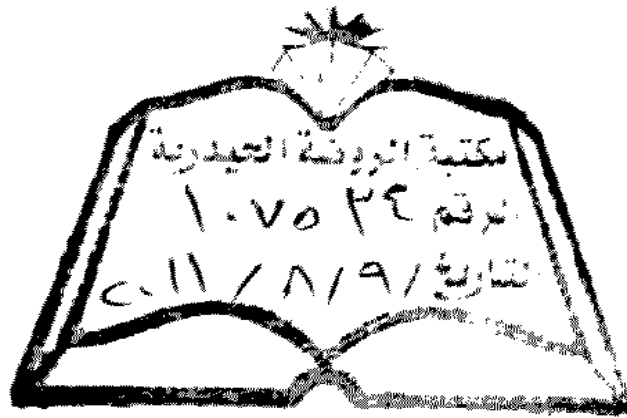 مكتبة الروضة الحيدرية
الرقم ١٠٧٥٣٤
التاريخ ٢٠١١ / ٨ / ٩ /